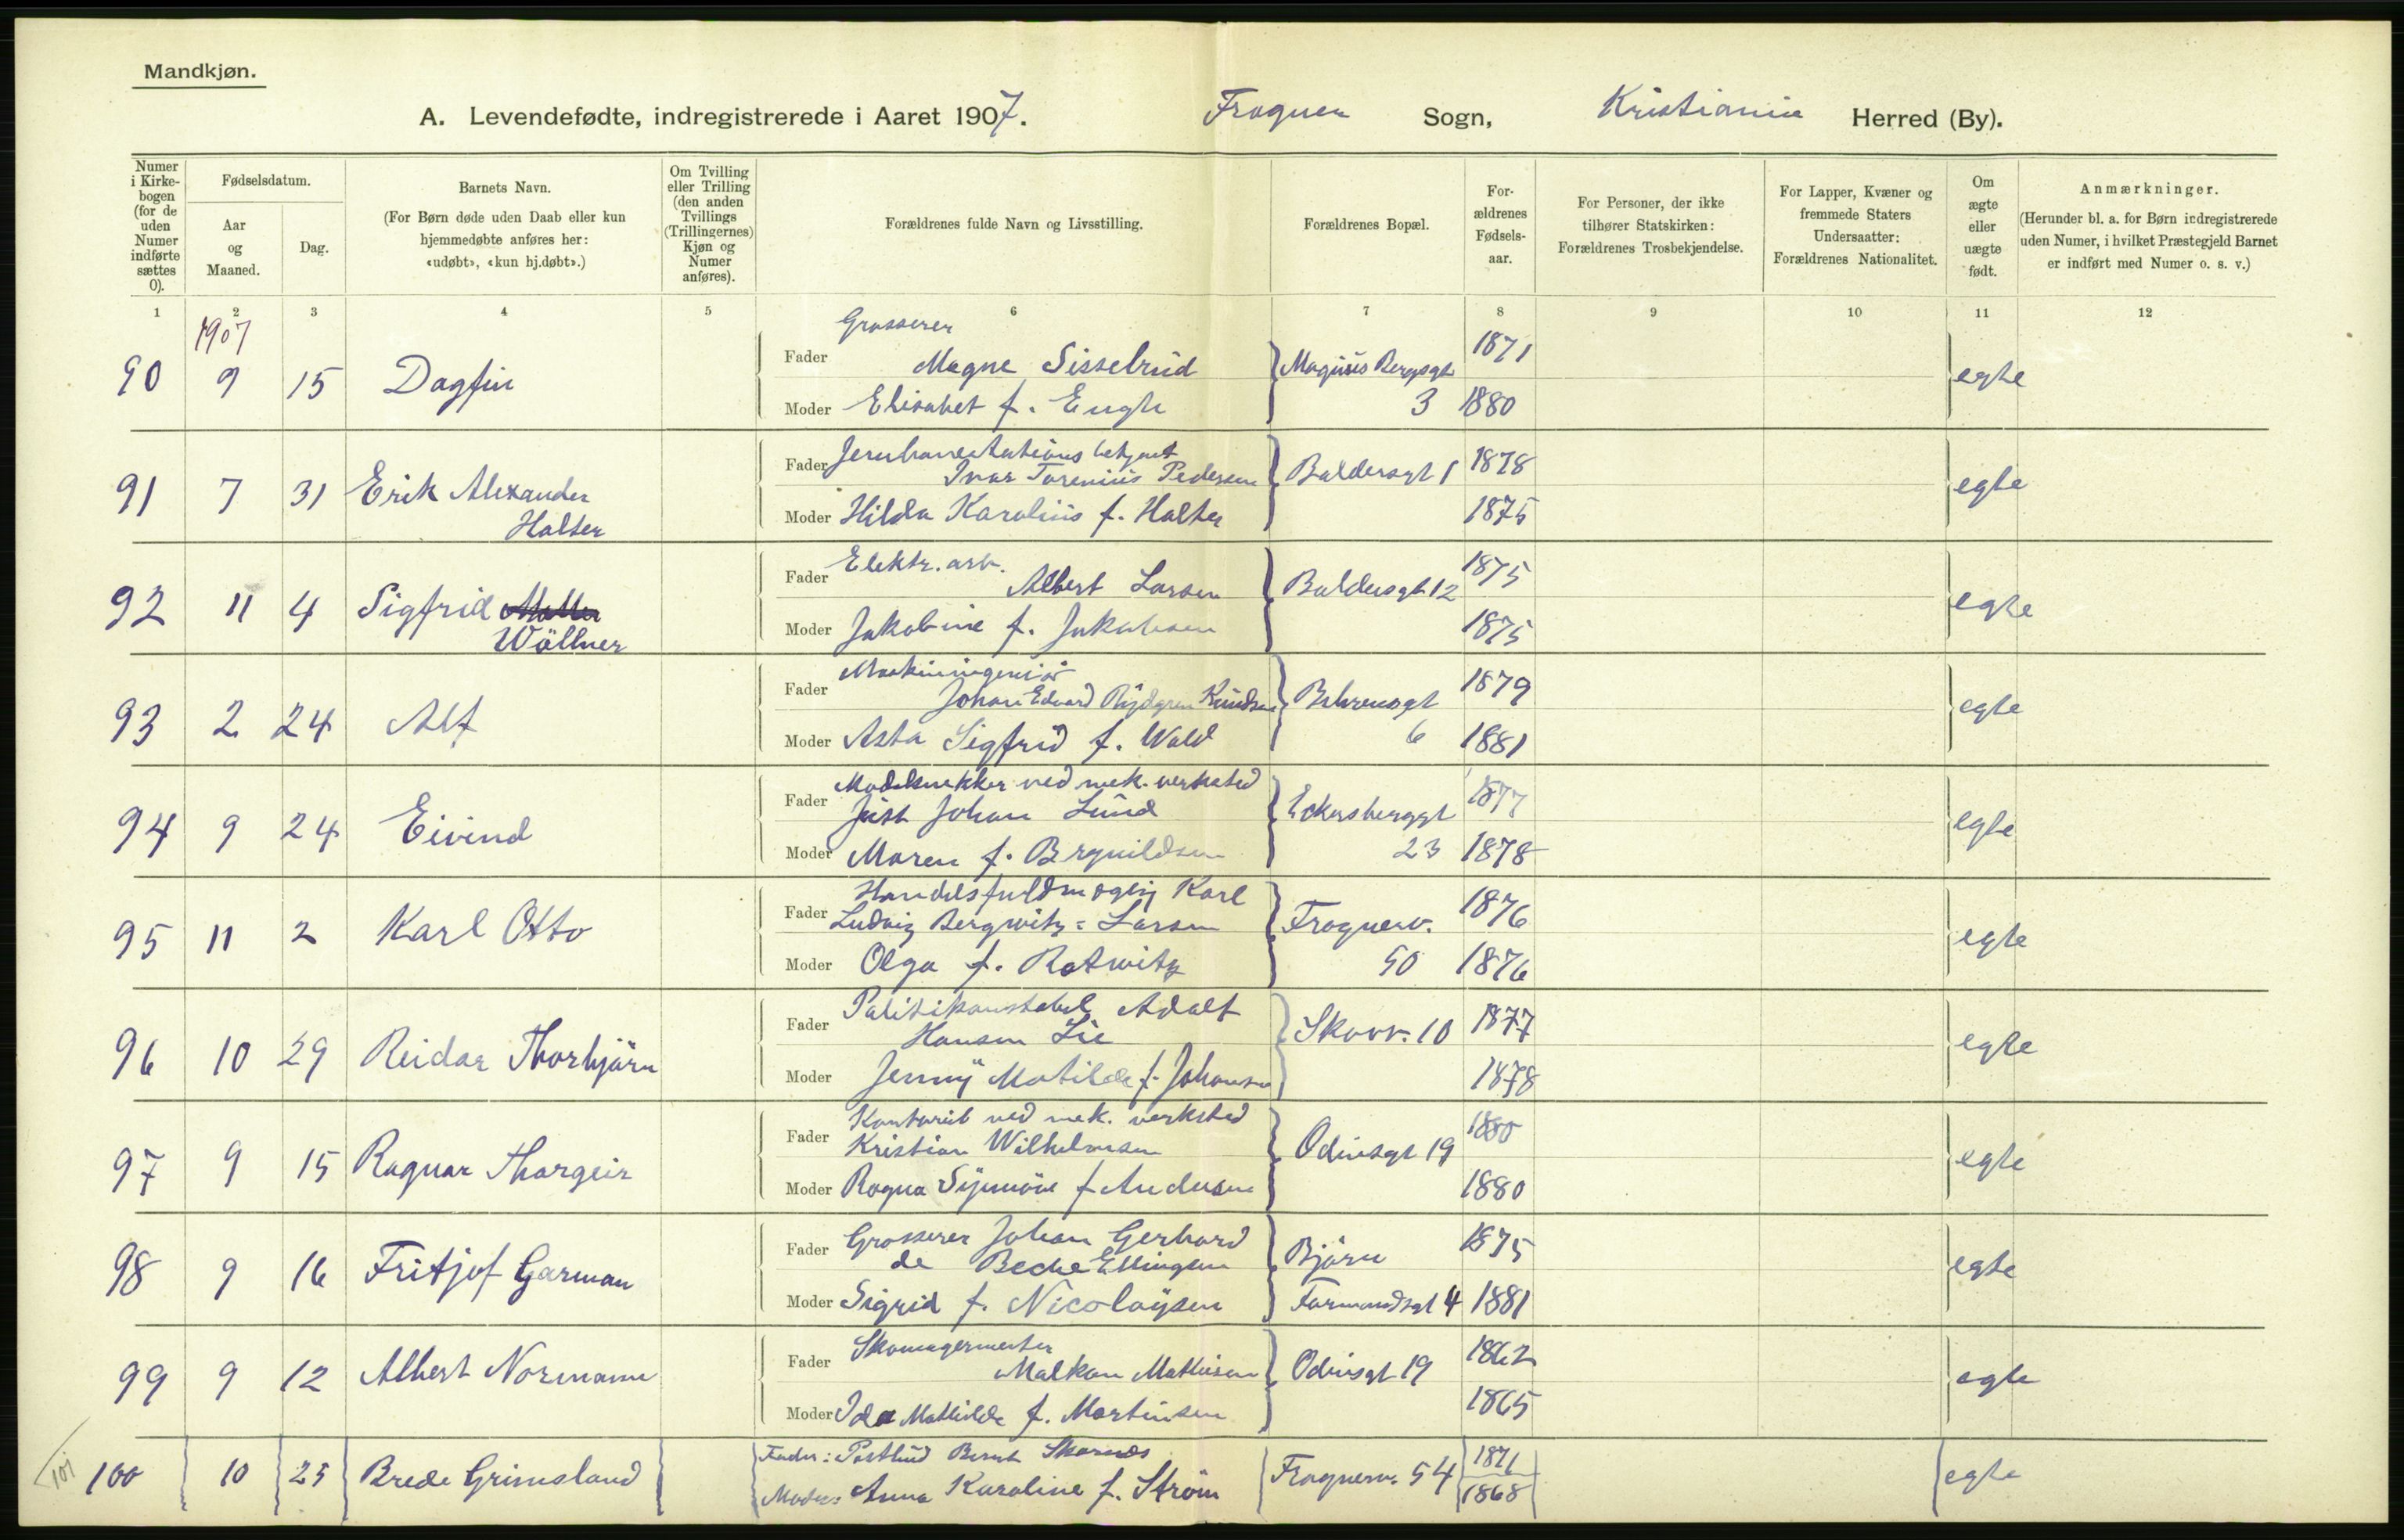 Mandkjøn.
A. Levendefødte, indregistrerede i Aaret 1907. Frogner Sogn, Kristiania Herred (By).
Numer i Kirkebogen (for de uden Numer indførte sættes 0).
Fødselsdatum.
Aar og Maaned.
Dag.
Barnets Navn.
(For Børn døde uden Daab eller kun
hjemmedøbte anføres her:
«udøbt», «kun hj.døbt».)
Om Tvilling
eller Trilling
(den anden
Tvillings
(Trillingernes)
Kjøn og
Numer
anføres).
Forældrenes fulde Navn og Livsstilling.
Forældrenes Bopæl.
For-
ældrenes
Fødsels-
aar.
For Personer, der ikke
tilhører Statskirken:
Forældrenes Trosbekjendelse.
For Lapper, Kvæner og
fremmede Staters
Undersaatter:
Forældrenes Nationalitet.
Om
ægte
eller
uægte
født.
Anmærkninger.
(Herunder bl. a. for Børn indregistrerede
uden Numer, i hvilket Præstegjeld Barnet
er indført med Numer o. s. v.)
1 2 3 4 5 6 7 8 9 10 11 12
1907
90 9 15 Dagfin
Fader Grosserer
Magne Sisselrud Magnus Bergsgt 1871
Moder Elisabet f. Engh 3 1880
egte
91 7 31 Erik Alexander
Halter
Fader Jernbanestations betjent
Ivar Torenius Pedersen Baldersgt 1 1878
Moder Hilda Karolius f. Halter 1875
egte
92 11 4 Sigfrid
Wöllner
Fader Elektr. arb.
Albert Larsen Baldersgt 12 1875
Moder Jakobine f. Jakobsen 1875
egte
93 2 24 Alf
Fader Maskiningeniør
Johan Edvard Rydgren Knudsen Behrensgt 1879
Moder Asta Sigfrid f. Wold 6 1881
egte
94 9 24 Eivind
Fader Modelsnekker ved mek. verksted
Just Johan Lund Eckersberggt 1877
Moder Maren f. Brynildsen 23 1878
egte
95 11 2 Karl Otto
Fader Handelsfuldmægtig Karl
Ludvig Bergwitz=Larsen Frognerv. 1876
Moder Olga f. Rotwitz 50 1876
egte
96 10 29 Reidar Thorbjørn
Fader Politikonstabel Adolf
Hansen Lie Skovv. 10 1877
Moder Jenny Matilde f. Johansen 1878
egte
97 9 15 Ragnar Thorgeir
Fader Kontorist ved mek. verksted
Kristian Wilhelmsen Odinsgt 19 1880
Moder Ragna Synnöve f Andersen 1880
egte
98 9 16 Fritjof Garman
Fader Grosserer Johan Gerhard
de Besche Ellingsen Bjørn 1875
Moder Sigrid f. Nicolaysen Farmandsgt 4 1881
egte
99 9 12 Albert Normann
Fader Skomagermester
Malkon Mathisen Odinsgt 19 1862
Moder Ida Mathilde f. Martinsen 1865
egte
101
100 10 23 Brede Grimsland
Fader: Postbud Bernt Skarnes Frognerv. 54 1871
Moder: Anna Karoline f. Strøm 1868
egte